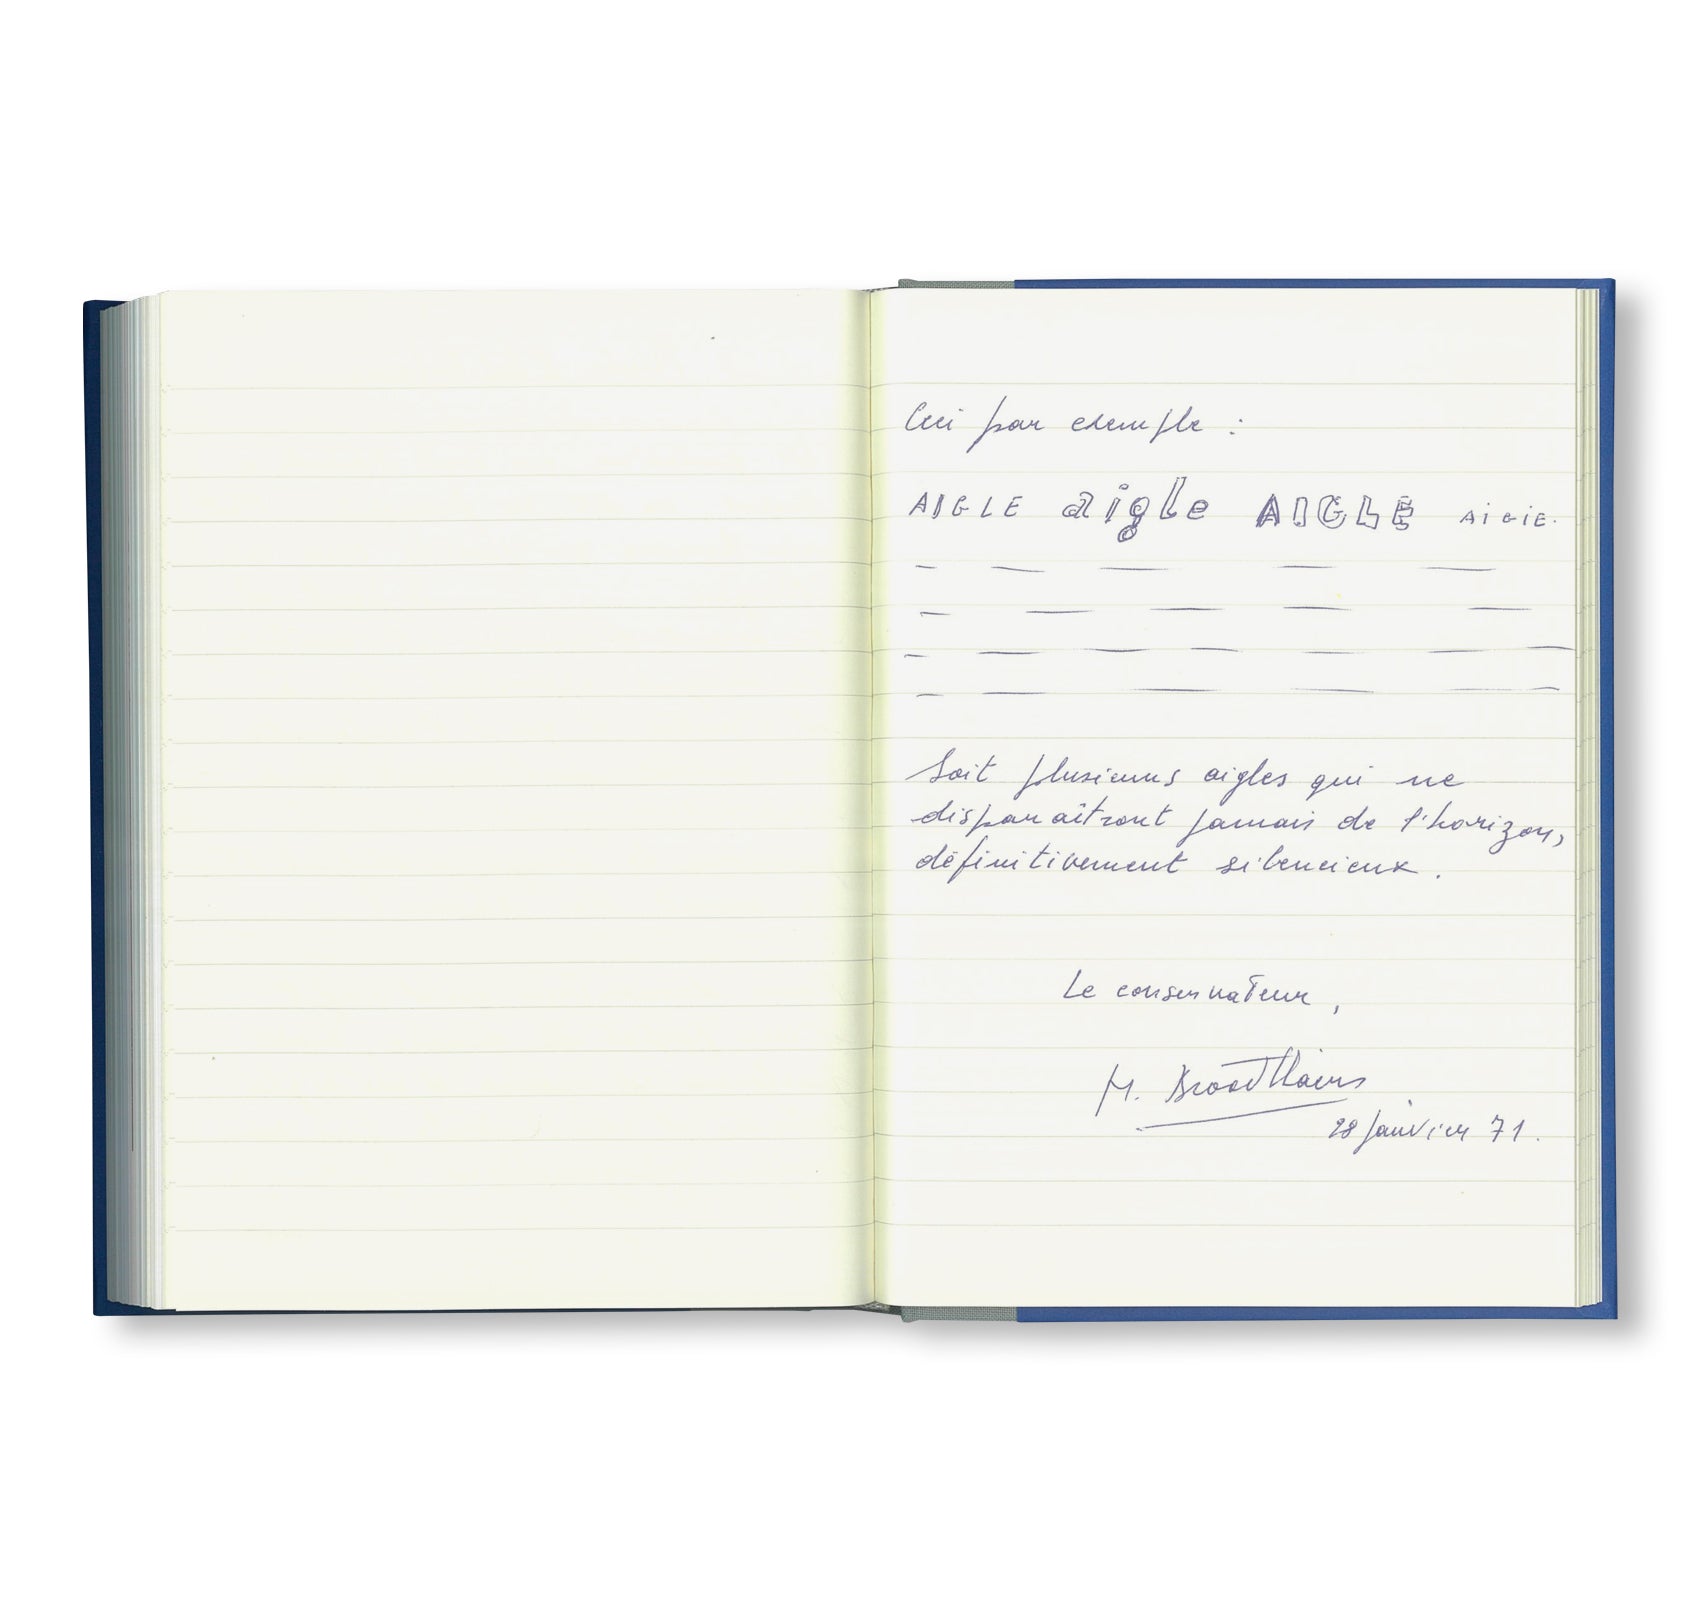 Ceci par exemple :
AIGLE aigle AIGLE AiGlE.
Soit plusieurs aigles qui ne
disparaîtront jamais de l'horizon,
définitivement silencieux.
Le conservateur,
M. Broodthaers
28 janvier 71.